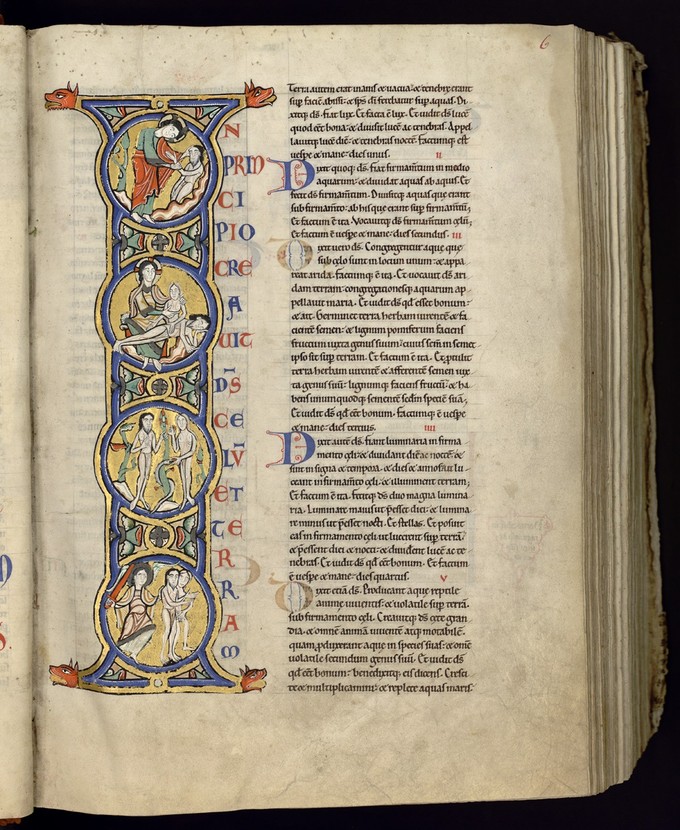 6
I
N
PRIN
CI
PIO
CRE
A
VIT
D̄S
CE
LV̄
ET
TE
R
R
A
M
Terra autem erat inanis & uacua: & tenebre erant
sup faciē abissi: & sp̄s dī ferebatur sup aquas. Di-
xitq; d̄s. fiat lux. Et facta ē lux. Et uidit d̄s lucē
quod eēt bona: & diuisit lucē ac tenebras. Appel
lauitq; lucē diē: & tenebras noctē. factumq; est
uespe & mane: dies unus. II
Dixit quoq; d̄s. fiat firmamtum in medio
aquarum: & diuidat aquas ab aquis. Et
fecit d̄s firmamtum. Diuisitq; aquas que erant
sub firmamto: ab his que erant sup firmamtum.
Et factum ē ita. Vocauitq; d̄s firmamtum celū.
Et factum ē uespe & mane: dies secundus. III
Dixit uero d̄s. Congregentur aque que
sub celo sunt in locum unum: & appa
reat arida. factumq; ē ita. Et uocauit d̄s ari
dam terram: congregationesq; aquarum ap
pellauit maria. Et uidit d̄s qd̄ esset bonum:
& ait. Germinet terra herbam uirentē & fa
cientē semen: & lignum pomiferum faciens
fructum iuxta genus suum: cuius sem̄ in semet
ipso sit sup terram. Et factum ē ita. Et ptulit
terra herbam uirentē & afferentē semen iux
ta genus suū: lignumq; faciens fructū: & ha-
bens unumquodq; sementē scdm speciē suā.
Et uidit d̄s qd̄ eēt bonum. factumq; ē uespe
& mane: dies tercius. IIII
Dixit autē d̄s. fiant luminaria in firma
mento celi: & diuidant diē ac noctē: &
sint in signa & tempora. & dies & annos: ut lu-
ceant in firmamto celi. & illuminent terram.
Et factum ē ita. fecitq; d̄s duo magna lumina
ria. Luminare maius ut pesset diei: & lumina
re minus ut pesset nocti. Et stellas. Et posuit
eas in firmamento celi ut lucerent sup terrā.
& pessent diei ac nocti: & diuiderent lucē ac te
nebras. Et uidit d̄s qd̄ eēt bonum. Et factum
ē uespe & mane: dies quartus. V
Dixit etiā d̄s. Producant aque reptile
anime uiuentis: & uolatile sup terrā.
sub firmamento celi. Creauitq; d̄s cete gran
dia. & omnē animā uiuentē atq; motabilē.
quam pduxerant aque in species suas: & omē
uolatile secundum genus suū. Et uidit d̄s
qd̄ eēt bonum: benedixitq; eis dicens. Cresci
te & multiplicamini: & replete aquas maris.